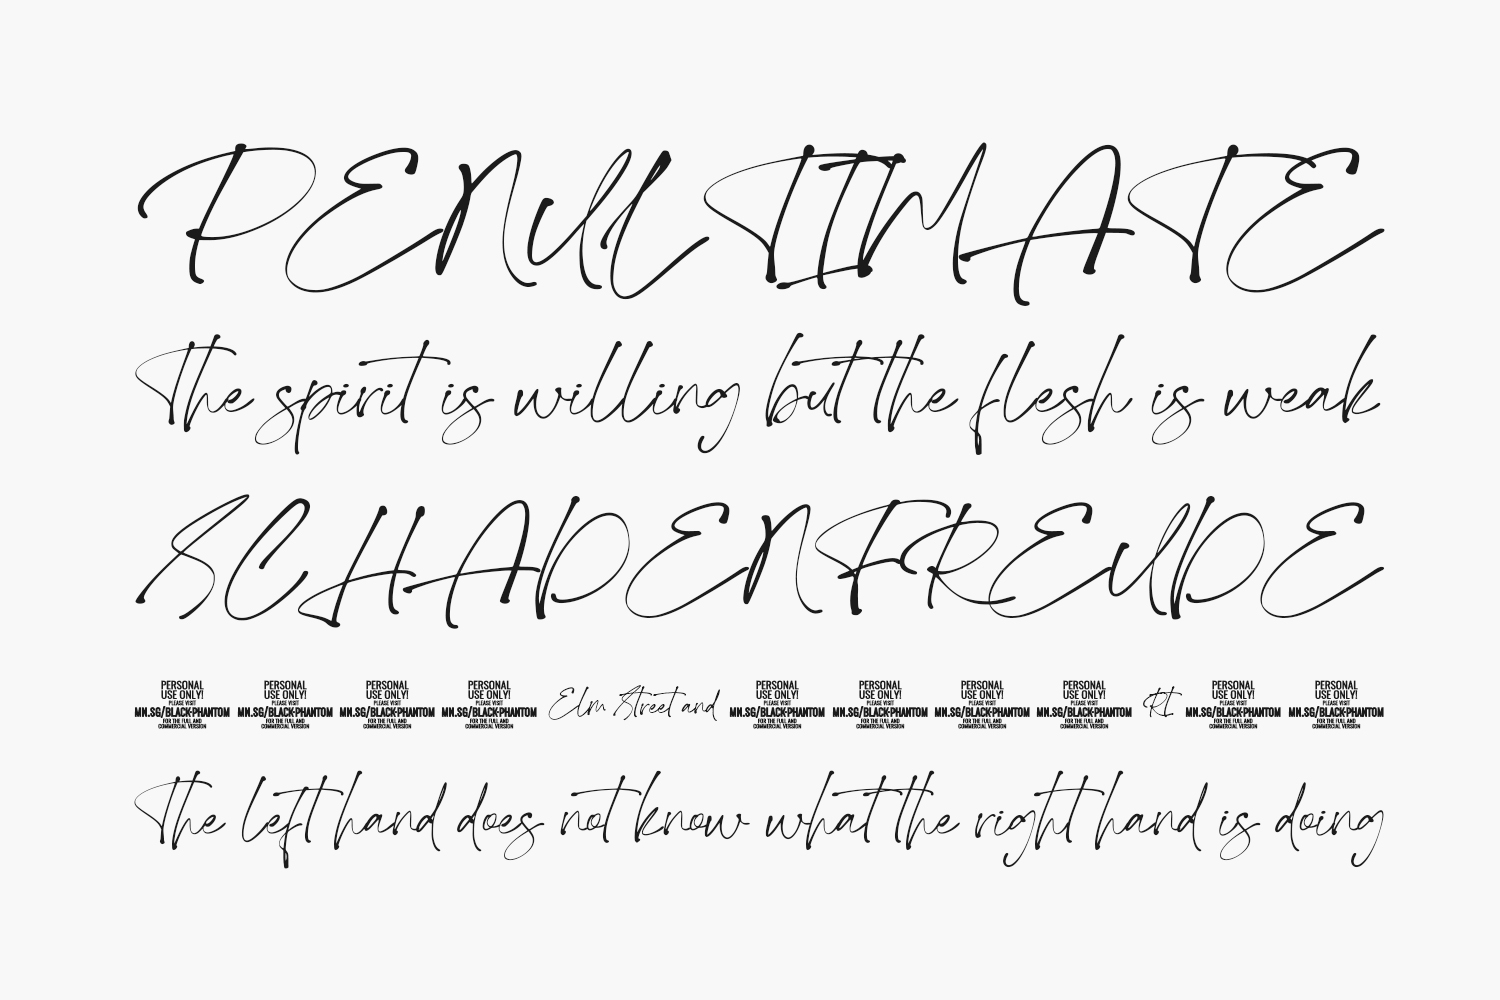 PENULTIMATE
The spirit is willing but the flesh is weak
SCHADENFREUDE
PERSONAL USE ONLY! PLEASE VISIT MN.SG/BLACK-PHANTOM FOR THE FULL AND COMMERCIAL VERSION PERSONAL USE ONLY! PLEASE VISIT MN.SG/BLACK-PHANTOM FOR THE FULL AND COMMERCIAL VERSION PERSONAL USE ONLY! PLEASE VISIT MN.SG/BLACK-PHANTOM FOR THE FULL AND COMMERCIAL VERSION PERSONAL USE ONLY! PLEASE VISIT MN.SG/BLACK-PHANTOM FOR THE FULL AND COMMERCIAL VERSION Elm Street and PERSONAL USE ONLY! PLEASE VISIT MN.SG/BLACK-PHANTOM FOR THE FULL AND COMMERCIAL VERSION PERSONAL USE ONLY! PLEASE VISIT MN.SG/BLACK-PHANTOM FOR THE FULL AND COMMERCIAL VERSION PERSONAL USE ONLY! PLEASE VISIT MN.SG/BLACK-PHANTOM FOR THE FULL AND COMMERCIAL VERSION PERSONAL USE ONLY! PLEASE VISIT MN.SG/BLACK-PHANTOM FOR THE FULL AND COMMERCIAL VERSION Rt PERSONAL USE ONLY! PLEASE VISIT MN.SG/BLACK-PHANTOM FOR THE FULL AND COMMERCIAL VERSION PERSONAL USE ONLY! PLEASE VISIT MN.SG/BLACK-PHANTOM FOR THE FULL AND COMMERCIAL VERSION
The left hand does not know what the right hand is doing